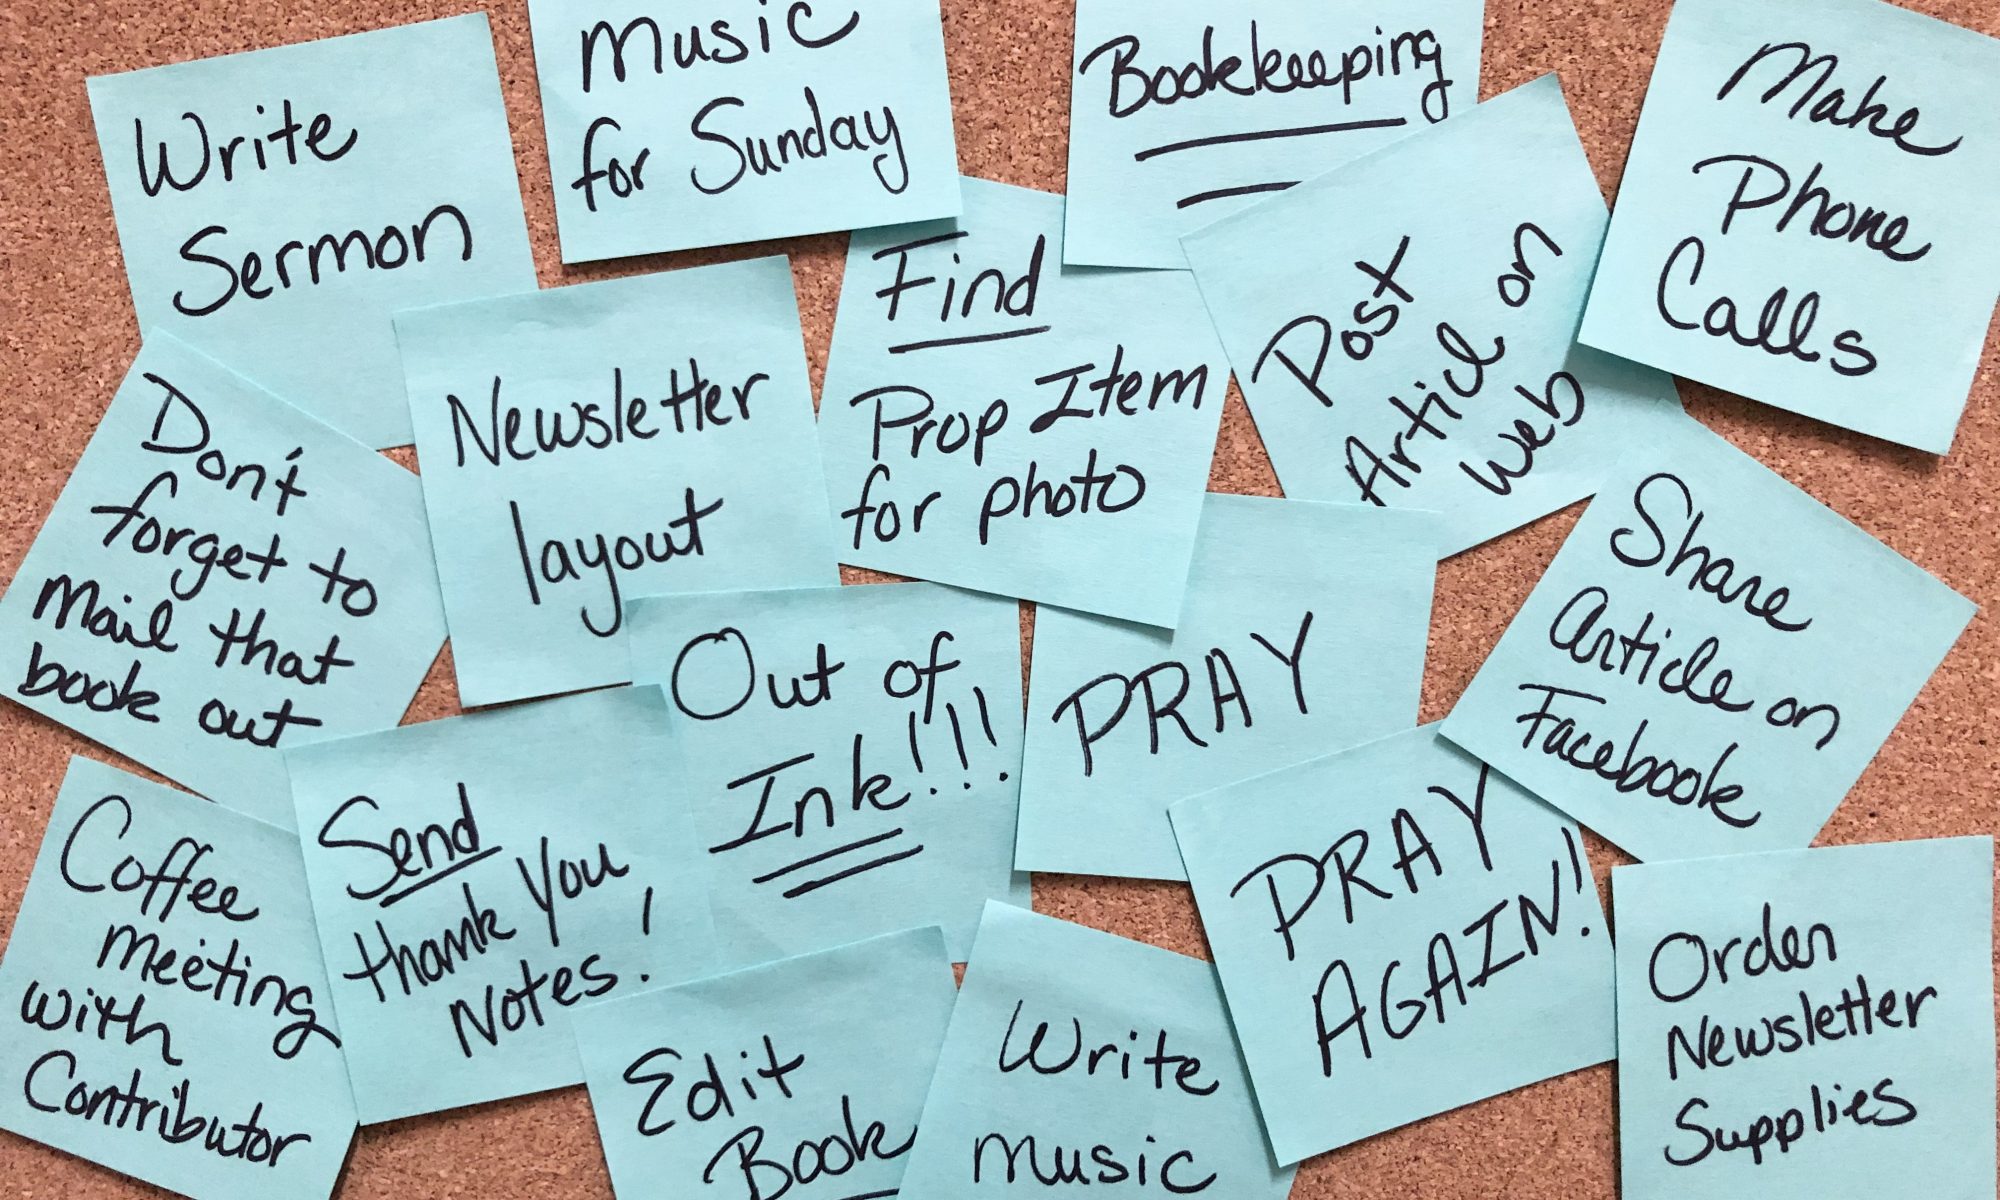 Write
Sermon
Music
for Sunday
Bookkeeping
Make
Phone
Calls
Find
Prop Item
for photo
Post
Article on
Web
Newsletter
layout
Don't
forget to
Mail that
book out
Share
Article on
Facebook
Out of
Ink!!!
PRAY
PRAY
AGAIN!
Coffee
Meeting
with
Contributor
Send
thank You
Notes!
Edit
Book
Write
Music
Order
Newsletter
Supplies